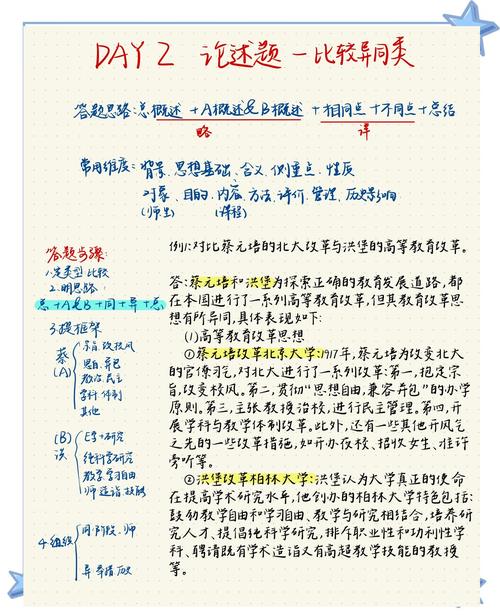 DAY 2 论述题 — 比较异同类
答题思路:总概述 + A概述&B概述 + 相同点 + 不同点 + 总结
略 详
常用维度: 背景、思想基础、含义、侧重点、性质
对象、目的、内容、方法、评价、管理、历史影响
(师生) (课程)
答题步骤:
1.定类型 比较
2.明思路:
总+A&B+同+异+总
3.搭框架
蔡 宗旨、改校风
(A) 思自、兼包
教治、民主
学科 体制
其他
(B) 大学+研究
洪 纯科学研究
教学学习自由
师 造诣、技能
4.组织 同:阶段、师
异:举措 历史
例1:对比蔡元培的北大改革与洪堡的高等教育改革。
答:蔡元培和洪堡为探索正确的教育发展道路,都
在本国进行了一系列高等教育改革,但其教育改革思
想有所异同,具体表现如下:
(1)高等教育改革思想
①蔡元培改革北京大学:1917年,蔡元培为改变北大
的官僚习气,对北大进行了一系列改革:第一,抱定宗
旨,改变校风。第二,贯彻“思想自由,兼容并包”的办学
原则。第三,主张教授治校,进行民主管理。第四,开
展学科与教学体制改革。此外,还有一些其他开风气
之先的一些改革措施,如开办夜校、招收女生、准许
旁听等。
②洪堡改革柏林大学:洪堡认为大学真正的使命
在提高学术研究水平,他创办的柏林大学特色包括:
鼓励教学自由和学习自由、教学与研究相结合,培养研
究人才、提倡纯科学研究,排斥职业性和功利性学
科、聘请既有学术造诣又有高超教学技能的教授
等。